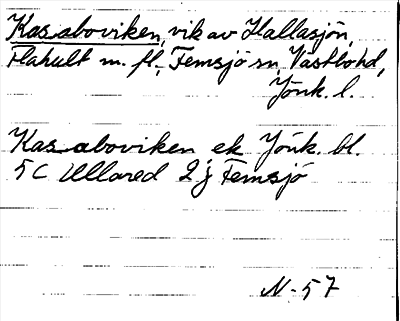 Kasaboviken, vik av Hallasjön,
Flahult m. fl., Femsjö sn, Västbo hd,
Jönk. l.
Kasaboviken ek Jönk. bl.
5C Ullared 2j Femsjö
N-57